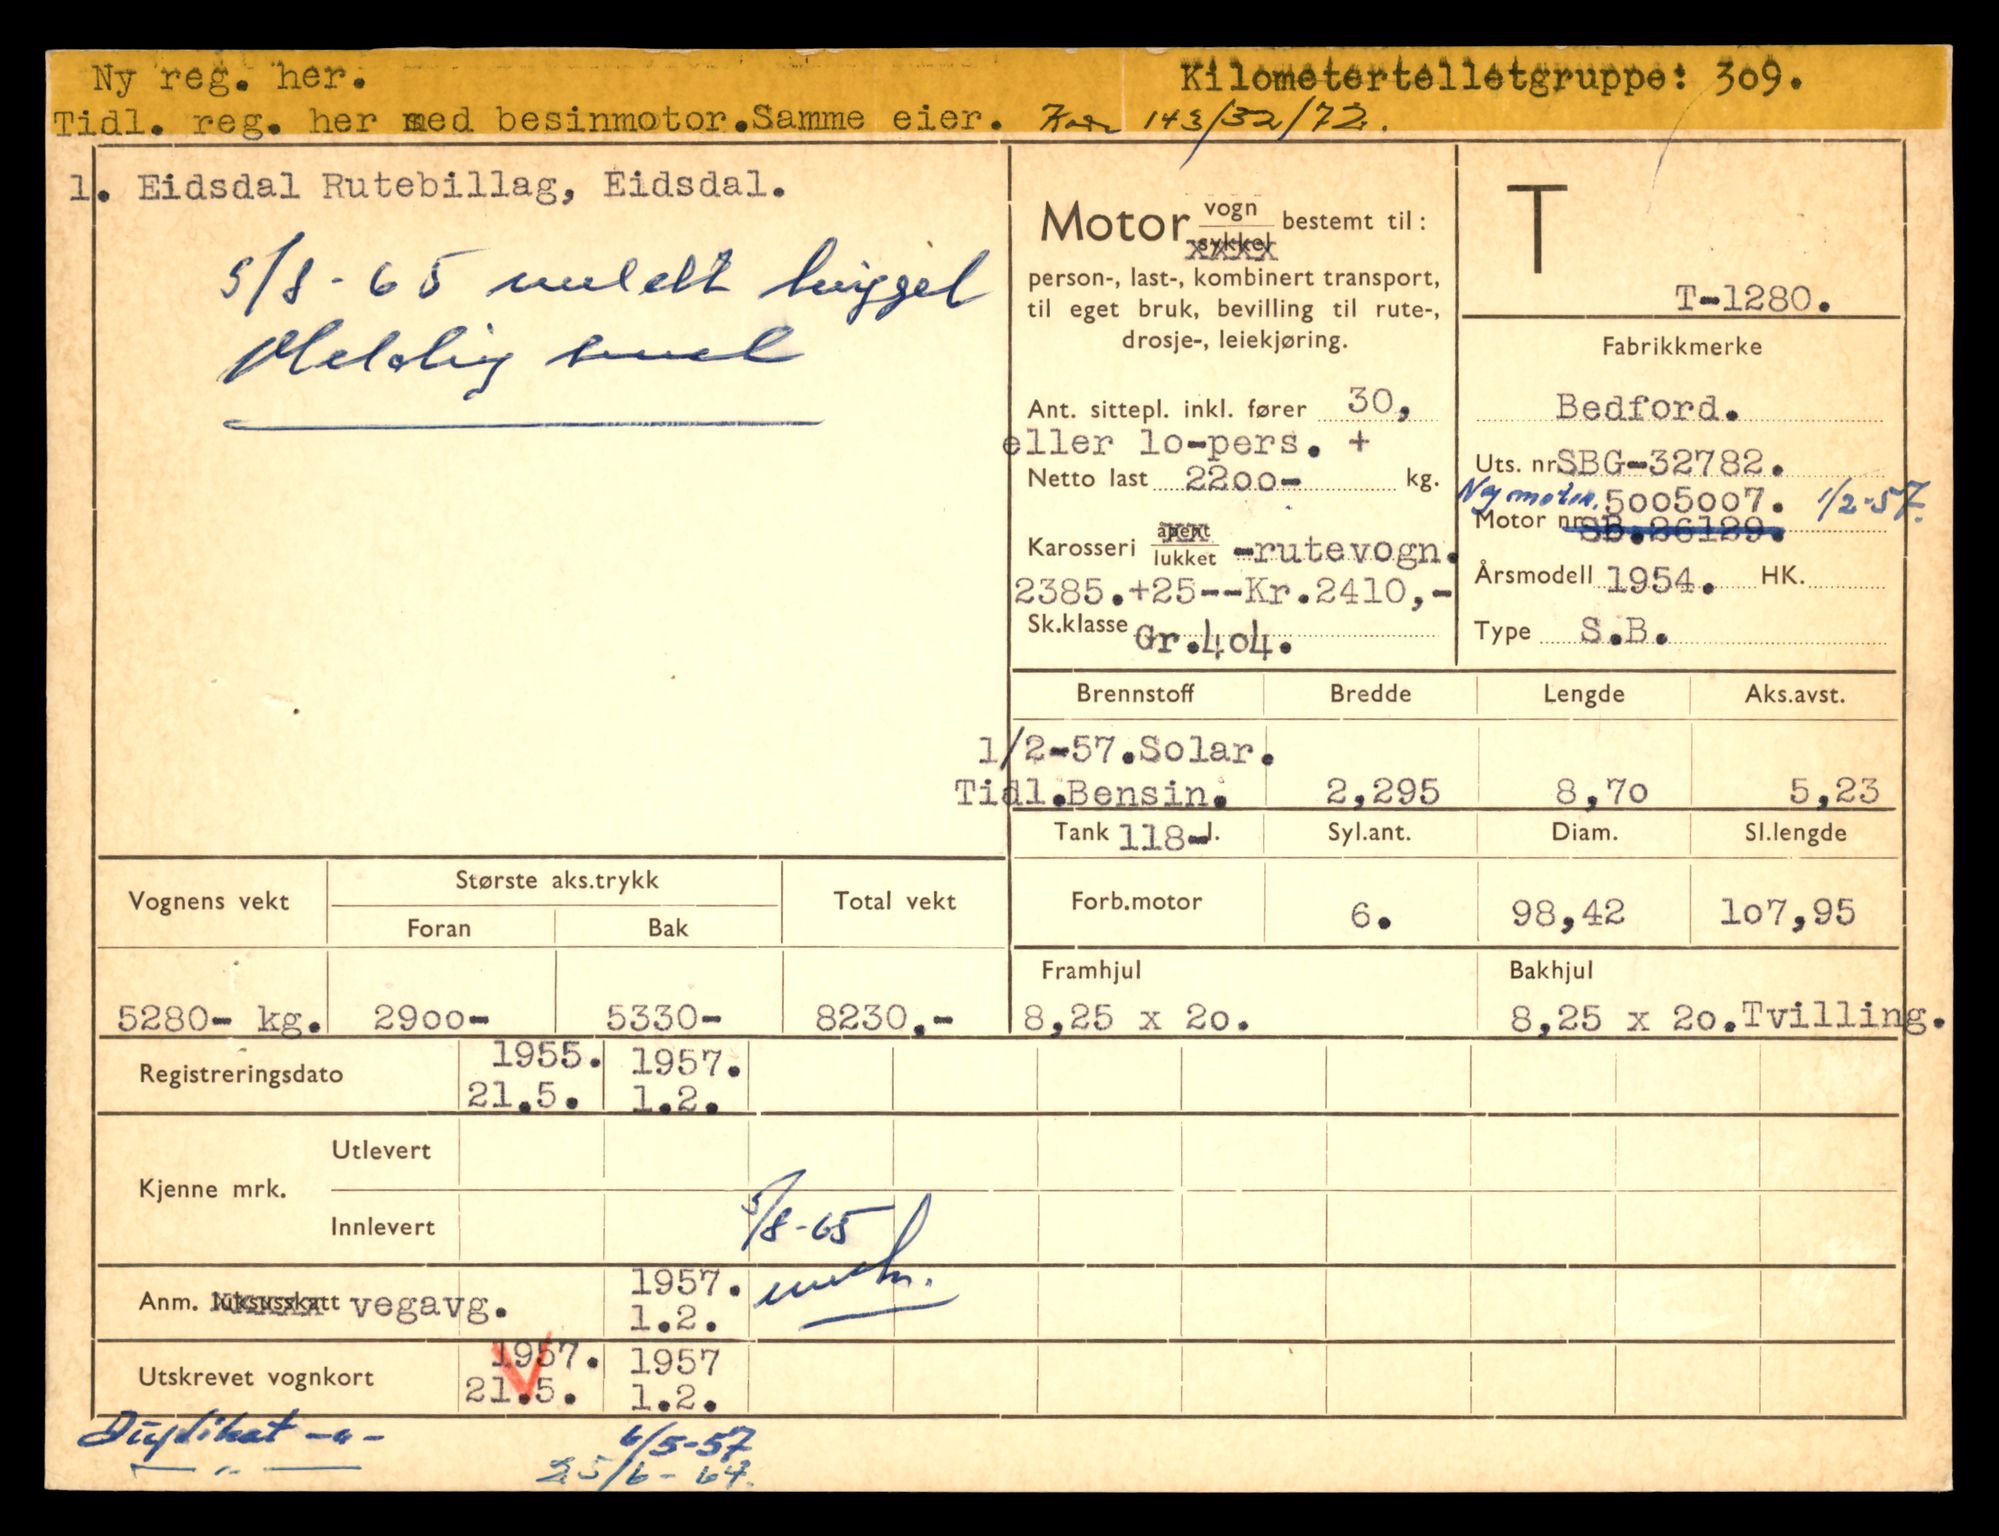 Ny reg. her. Kilometertelletgruppe: 309.
Tidl. reg. her med besinmotor. Samme eier. 143/32/72.
1. Eidsdal Rutebillag, Eidsdal.
5/8-65
Motor vogn sykkel bestemt til:
person-, last-, kombinert transport,
til eget bruk, bevilling til rute-,
drosje-, leiekjøring.
Ant. sittepl. inkl. fører 30,
eller lo-pers. +
Netto last 2200- kg.
Karosseri åpent lukket -rutevogn.
2385.+25--Kr.2410,-
Sk.klasse Gr.404.
T
T-1280.
Fabrikkmerke
Bedford.
Uts. nr SBG-32782.
Ny motor. 5005007. 1/2-57.
Motor nr. SB.26129.
Årsmodell 1954. HK.
Type S.B.
Brennstoff Bredde Lengde Aks.avst.
1/2-57.Solar.
Tidl.Bensin. 2,295 8,70 5,23
Tank 118-l. Syl.ant. Diam. Sl.lengde
Forb.motor 6. 98,42 107,95
Framhjul Bakhjul
8,25 x 20. 8,25 x 20.Tvilling.
Vognens vekt Største aks.trykk Total vekt
Foran Bak
5280- kg. 2900- 5330- 8230.-
Registreringsdato 1955. 1957.
21.5. 1.2.
Kjenne mrk. Utlevert
Innlevert 5/8-65
Anm. luksusskatt vegavg. 1957.
1.2.
Utskrevet vognkort 1957. 1957
21.5. 1.2.
Duplikat -"- 6/5-57
-"- 25/6-64.